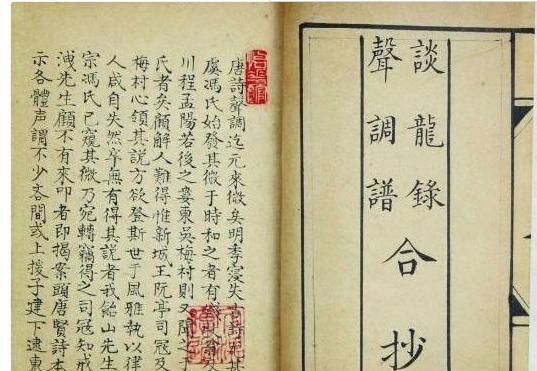 談龍錄
聲調譜
合抄
唐詩聲調迄元來微矣明季寖失古詩尤甚
虞馮氏始發其微于時和之者有錢牧翁及
川程孟陽若後之婁東吳梅村則又聞之于
氏者矣顧解人難得惟新城王阮亭司冠及
梅村心領其說方欲登斯世于風雅執以律
人咸自失然卒無有得其說者我飴山先生
宗馮氏已窺其微乃宛轉竊得之司冠知戒
洩先生顧不有來叩者即揭案頭唐賢詩本
示各體声謂不少吝間或上援子建下逮東